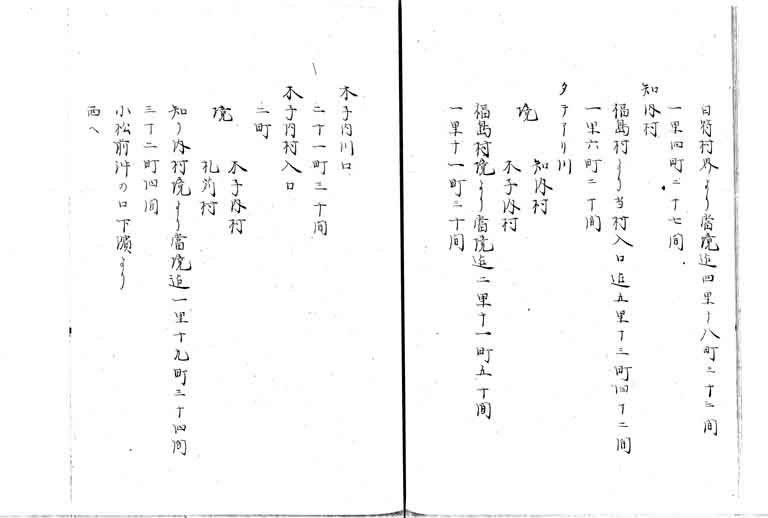 白符村界より當境迄四里〡八町二十三間
一里四町二十七間
知内村
福島村より当村入口迄五里十三町四十二間
一里六町二十間
タテアリ川
境 知内村
木子内村
福島村境より當境迄二里十一町五十間
一里十一町三十間
木子内川口
二十一町三十間
木子内村入口
二町
境 木子内村
札苅村
知り内村境より當境迄一里十九町三十四間
三十二町四間
小松前沖の口下濱より
西へ